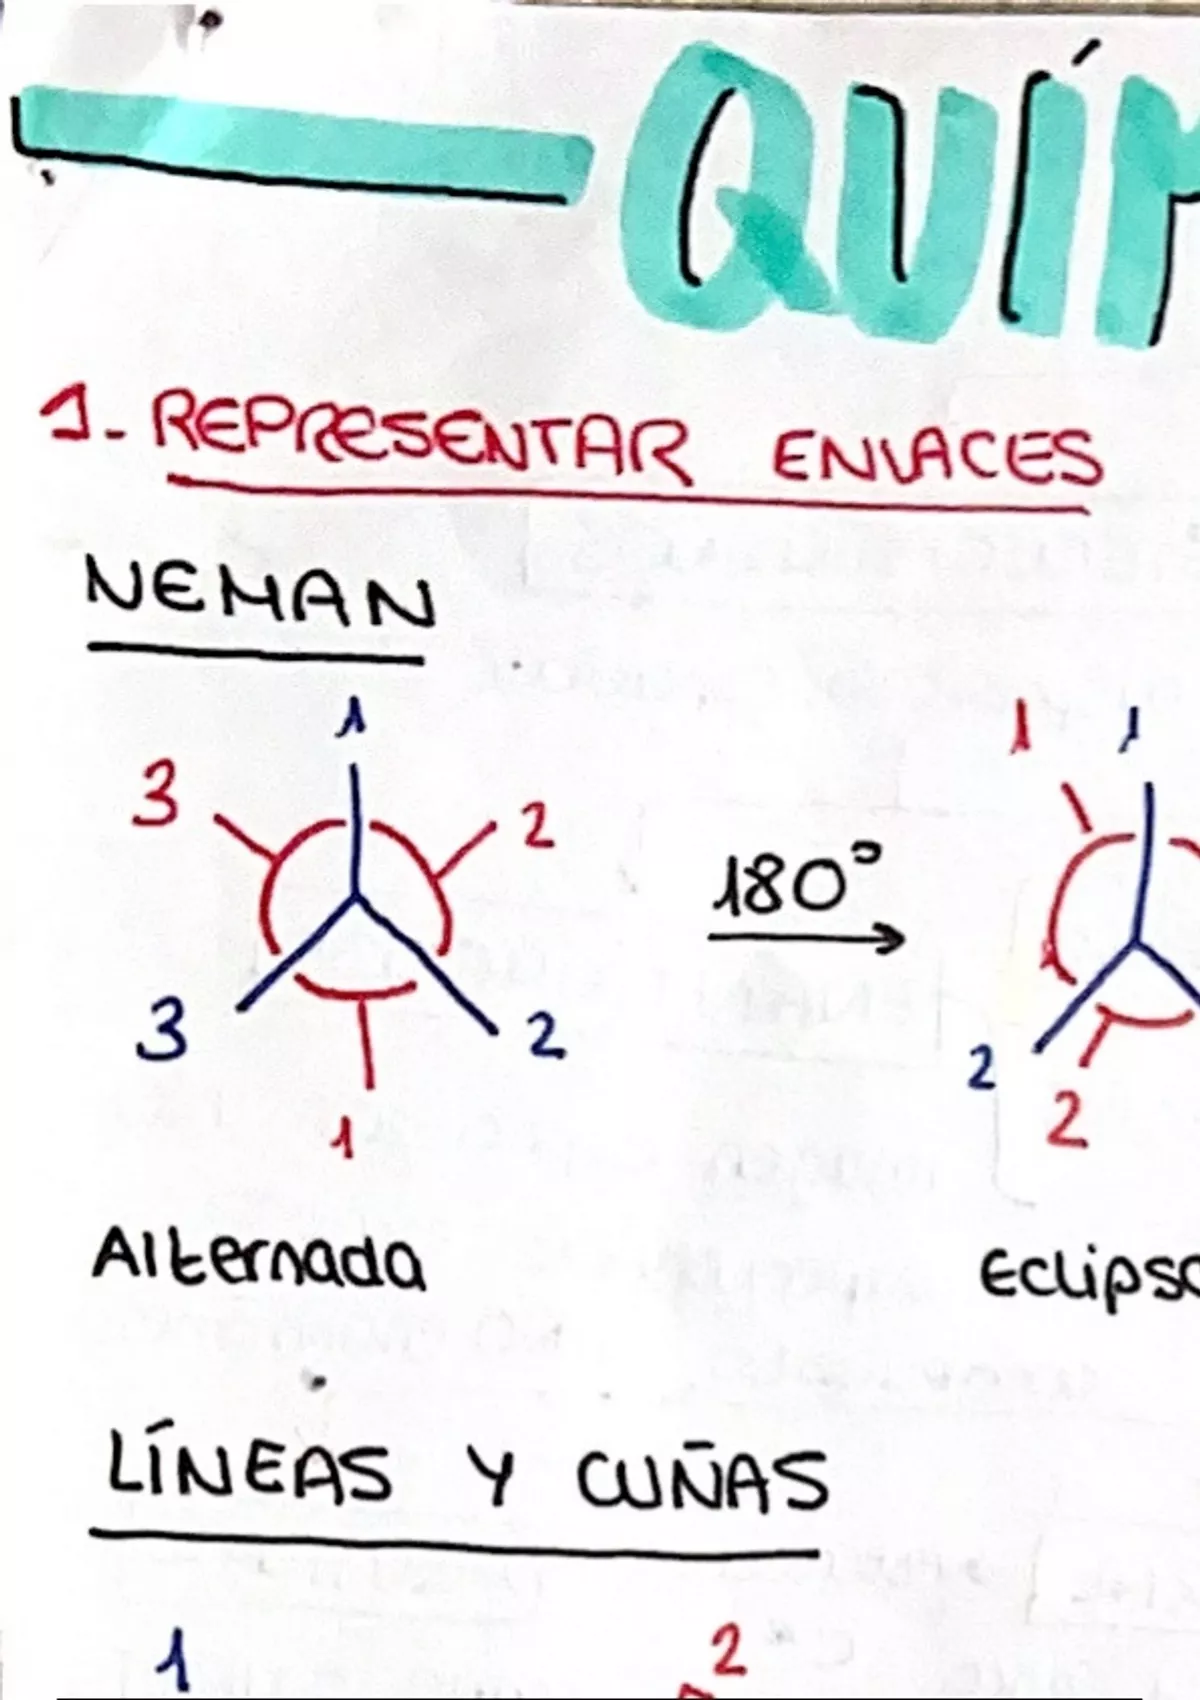 QUÍM
1. REPRESENTAR ENLACES
NEMAN
1
3 2
3 2
1
180°
1 1
2
2
Alternada Eclips
LÍNEAS Y CUÑAS
1 2